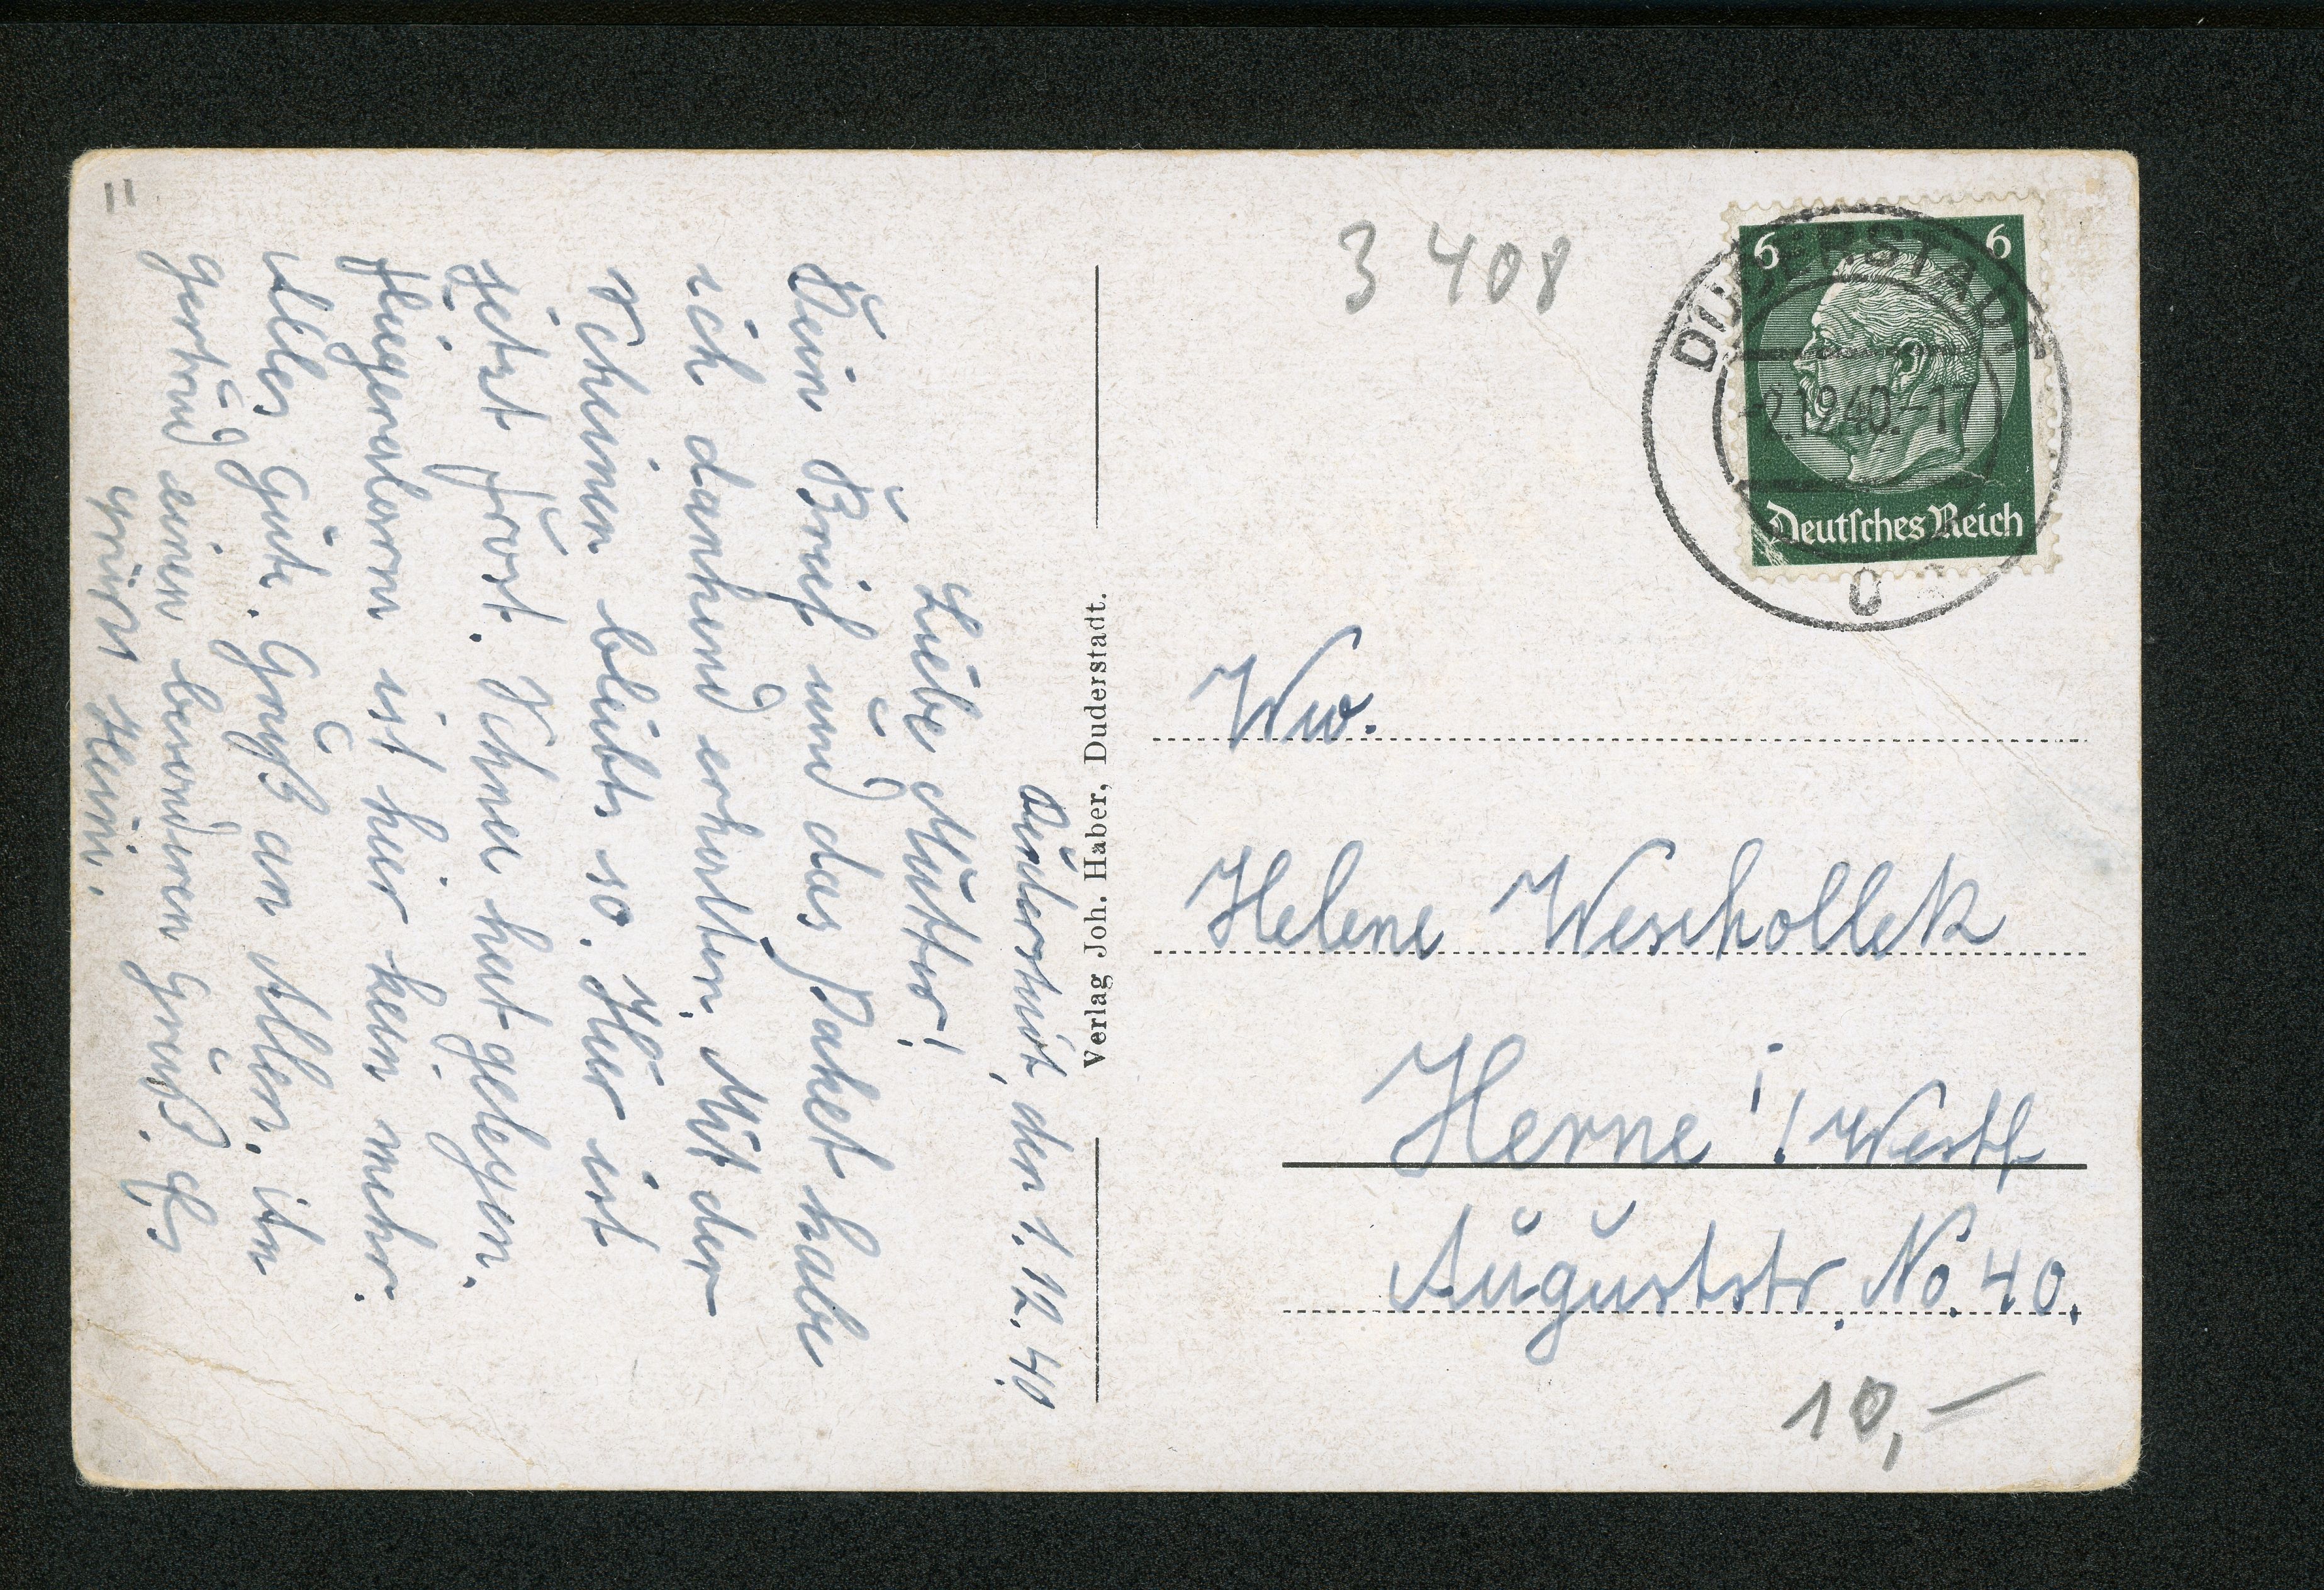 Duderstadt, den 1.12.40
Liebe Mutter!
Dein Brief und das Paket habe
ich dankend erhalten. Mit der
Scheinen bleibts so. Hier ist
jetzt Frost. Schnee hat gelegen.
Fliegeralarm ist hier kein mehr.
Alles Gute. Gruß an Allen. ihn
Gertrud einen besonderen Gruß. Es
grüßt Heini.
Verlag Joh. Haber, Duderstadt.
3 408
6 6
Deutsches Reich
DUDERSTADT
-2.12.40.-17
c
Ww.
Helene Weschollek
Herne i/Westf
Auguststr. No. 40.
10,-
11